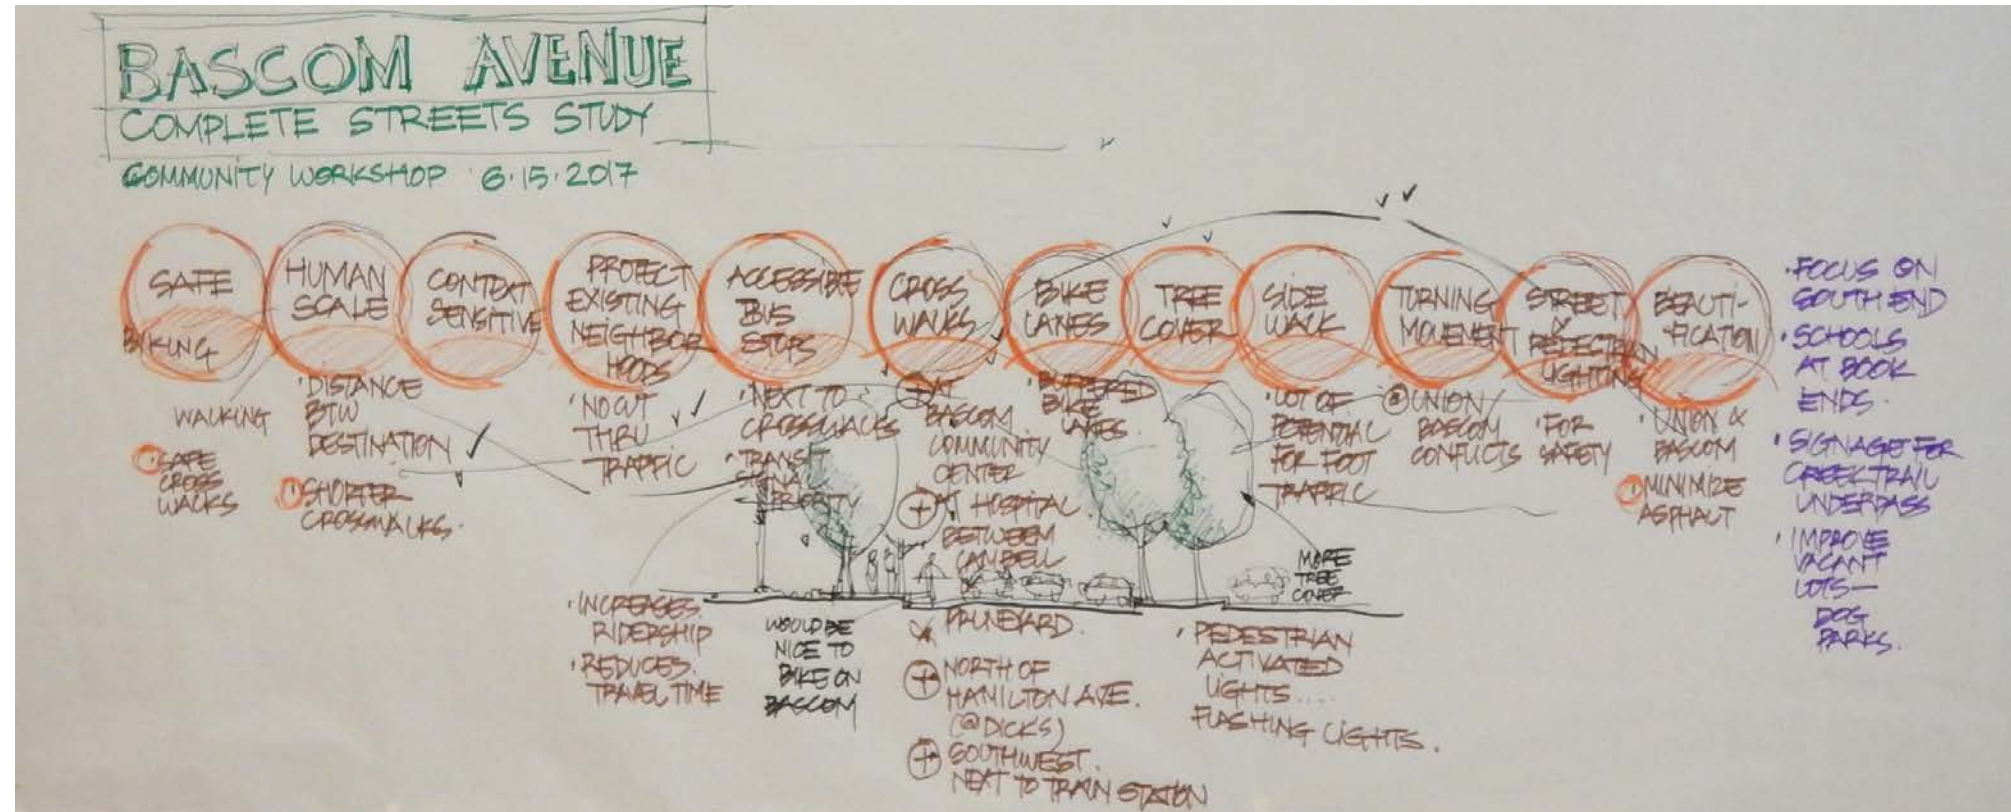 BASCOM AVENUE
COMPLETE STREETS STUDY
COMMUNITY WORKSHOP 6.15.2017
SAFE
BIKING
WALKING
SAFE
CROSS
WALKS
HUMAN
SCALE
• DISTANCE
BTW
DESTINATION
SHORTER
CROSSWALKS.
CONTEXT
SENSITIVE
PROTECT
EXISTING
NEIGHBOR
HOODS
• NO CUT
THRU
TRAFFIC
ACCESSIBLE
BUS
STOPS
• NEXT TO
CROSSWALKS
• TRANSIT
SIGNAL
PRIORITY
• INCREASES
RIDERSHIP
• REDUCES
TRAVEL TIME
WOULD BE
NICE TO
BIKE ON
BASCOM
CROSS
WALKS
+ AT
BASCOM
COMMUNITY
CENTER
+ AT HOSPITAL
BETWEEN
CAMBELL
&
PRUNEYARD.
+ NORTH OF
HAMILTON AVE.
(@DICKS)
+ SOUTHWEST.
NEXT TO TRAIN STATION
BIKE
LANES
• BUFFERED
BIKE
LANES.
TREE
COVER
MORE
TREE
COVER
• PEDESTRIAN
ACTIVATED
LIGHTS....
FLASHING LIGHTS.
SIDE
WALK
• LOT OF
POTENTIAL
FOR FOOT
TRAFFIC
TURNING
MOVEMENT
@UNION/
BASCOM
CONFLICTS
STREET
&
PEDESTRIAN
LIGHTING
• FOR
SAFETY
BEAUTI-
FICATION
• UNION &
BASCOM
MINIMIZE
ASPHALT
• FOCUS ON
SOUTH END
• SCHOOLS
AT BOOK
ENDS.
• SIGNAGE FOR
CREEK TRAIL
UNDERPASS
• IMPROVE
VACANT
LOTS—
DOG
PARKS.